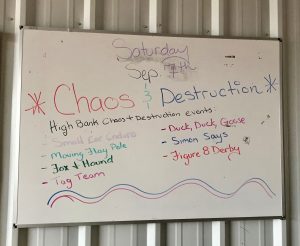 Saturday
Sep. 7th
* Chaos & Destruction *
High Bank Chaos + Destruction events:
- Small Car Enduro
- Moving Flag Pole
- Fox & Hound
- Tag Team
- Duck, Duck, Goose
- Simon Says
- Figure 8 Derby